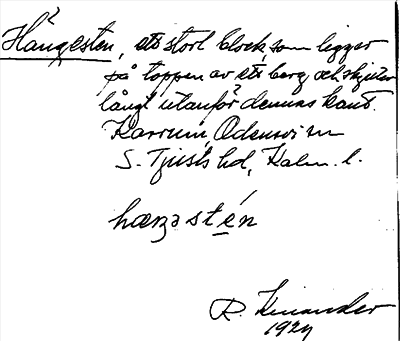 Hängesten, ett stort block, som ligger
på toppen av ett berg och skjuter
långt utanför dennas kant.
Karrum, Odensvi sn
S. Tjusts hd, Kalm. l.
hæŋəstén
R. Kinander
1927